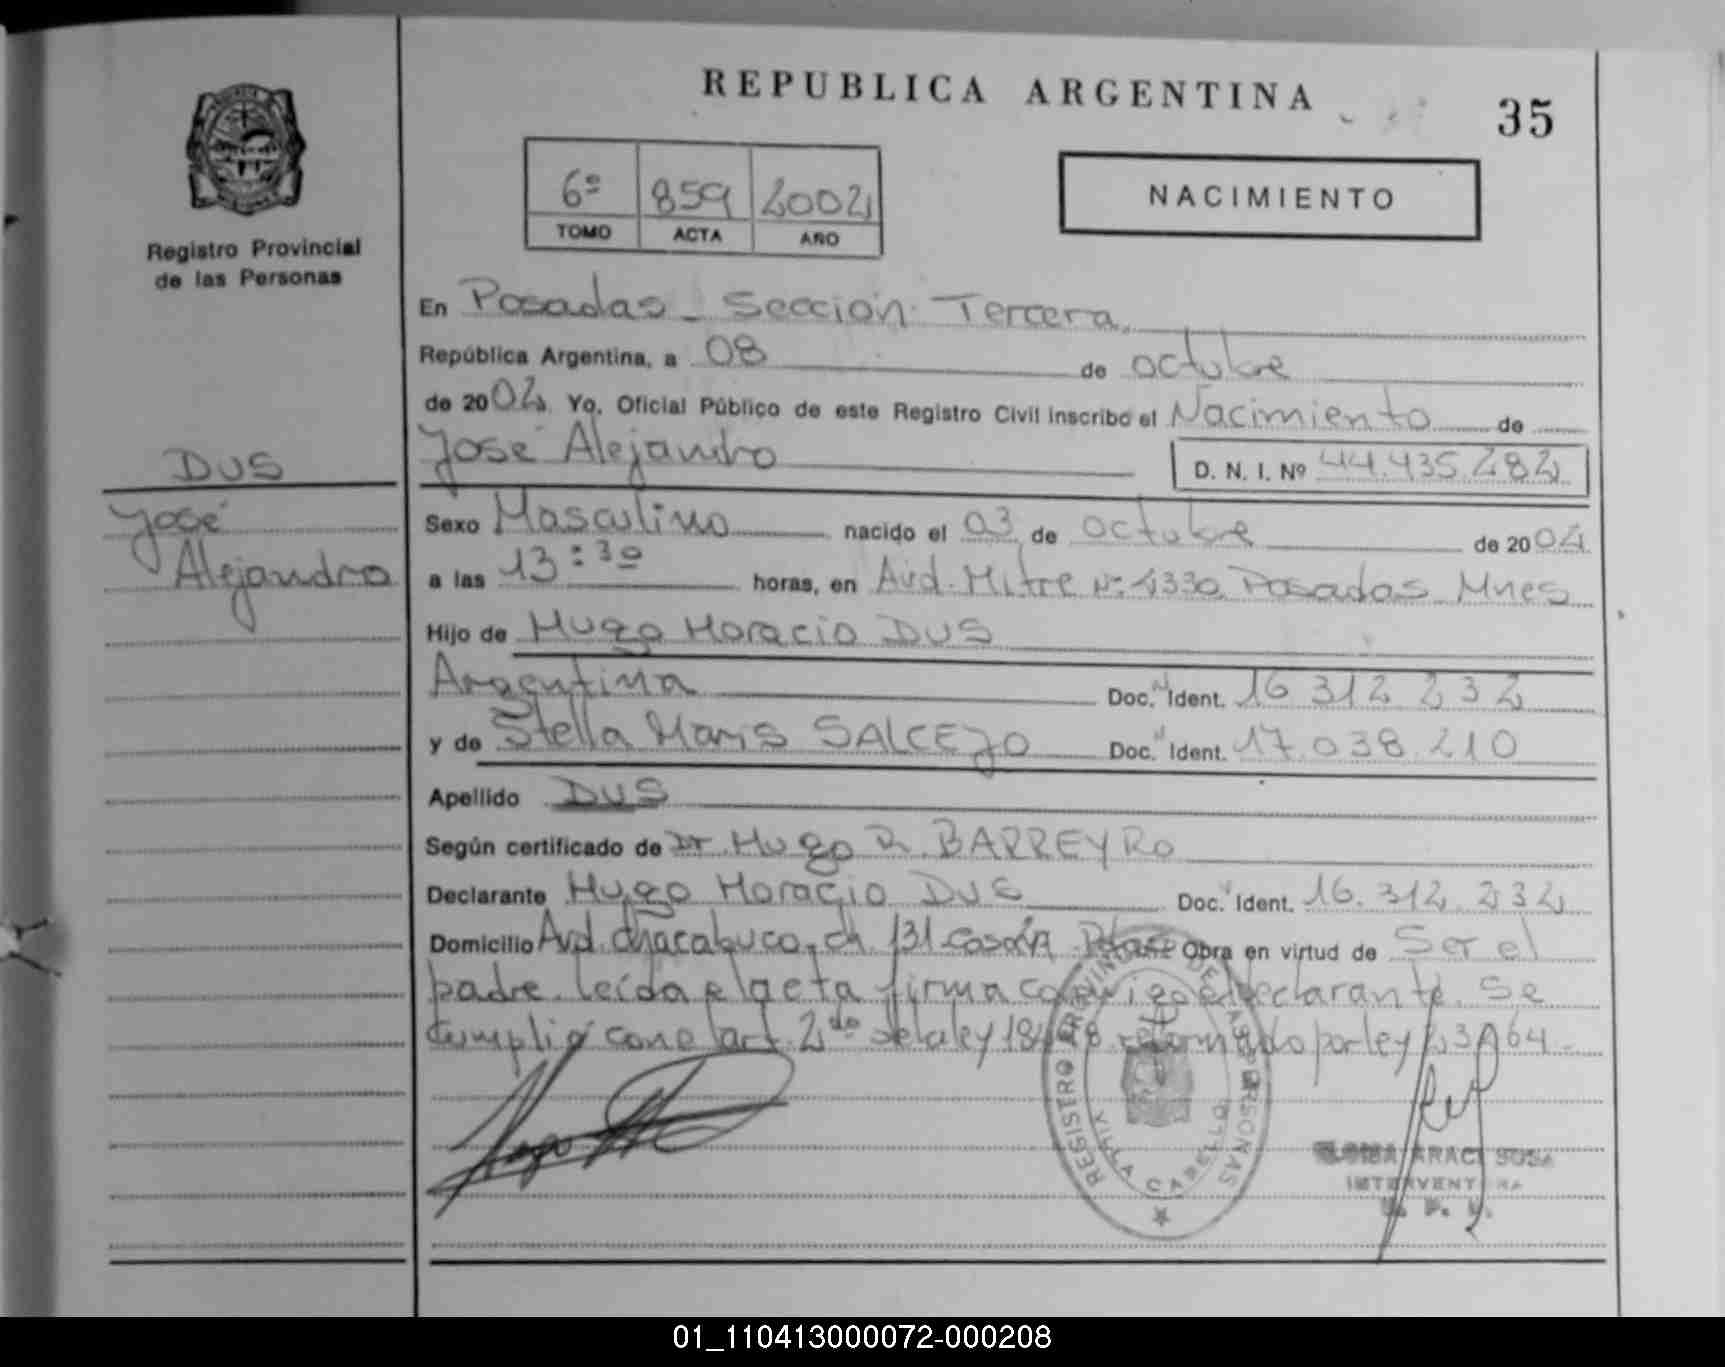 REPUBLICA ARGENTINA
35
6º 859 2002
TOMO ACTA AÑO
NACIMIENTO
Registro Provincial
de las Personas
En Posadas - Sección Tercera
República Argentina, a 08 de octubre
de 2002 Yo, Oficial Público de este Registro Civil inscribo el Nacimiento de
José Alejandro D. N. I. Nº 44.435.282
DUS
José
Alejandro
Sexo Masculino nacido el 03 de octubre de 2002
a las 13:30 horas, en Avd. Mitre Nº Posadas Mnes
Hijo de Hugo Horacio DUS
Argentina Doc. Ident. 16 312 232
y de Stella Maris SALCEJO Doc. Ident. 17.038.210
Apellido DUS
Según certificado de Dr. Hugo R. BARREYRO
Declarante Hugo Horacio DUS Doc. Ident. 16.312.232
Domicilio Avd. chacabuco, ch 131 casa Obra en virtud de Ser el
padre. leída el acta firma conmigo el declarante. Se
cumplió con el art. 2do de la ley reformado por ley
REGISTRO PROVINCIAL DE LAS PERSONAS
VILLA CABELLO
ARACI SOSA
INTERVENTORA
01_110413000072-000208